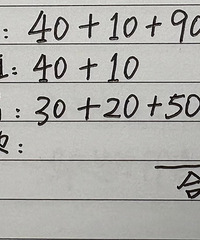 : 40+10+90
: 40+10
: 30+20+50
:
合